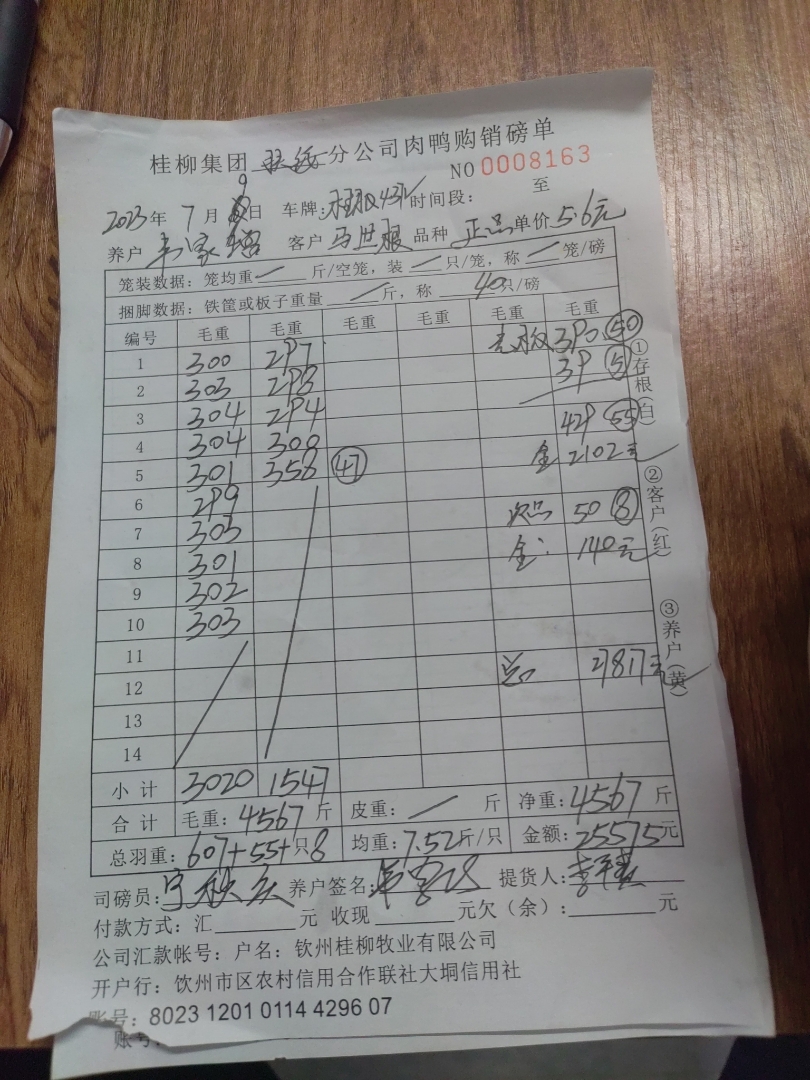 桂柳集团 分公司肉鸭购销磅单
NO 0008163
2023年 7月 9日 车牌: 时间段: 至
养户 韦家 客户 马世根 品种 正品 单价 5.6元
笼装数据:笼均重 — 斤/空笼,装 — 只/笼,称 — 笼/磅
捆脚数据:铁筐或板子重量 — 斤,称 40 只/磅
编号 毛重 毛重 毛重 毛重 毛重 毛重
1 300 297 毛 390 50
2 303 298 39 5
3 304 294 429 55
4 304 300 金 2102元
5 301 358 47
6 299 次品 50 8
7 303 金: 140元
8 301
9 302
10 303
11
12 总 27817元
13
14
小计 3020 1547
合计 毛重:4567斤 皮重: — 斤 净重:4567斤
总羽重:607+55+只8 均重:7.52斤/只 金额:25575元
司磅员: 养户签名: 提货人:
付款方式:汇 元 收现 元欠(余): 元
公司汇款帐号:户名:钦州桂柳牧业有限公司
开户行:钦州市区农村信用合作联社大垌信用社
账号:8023 1201 0114 4296 07
账号:
①存根(白)
②客户(红)
③养户(黄)